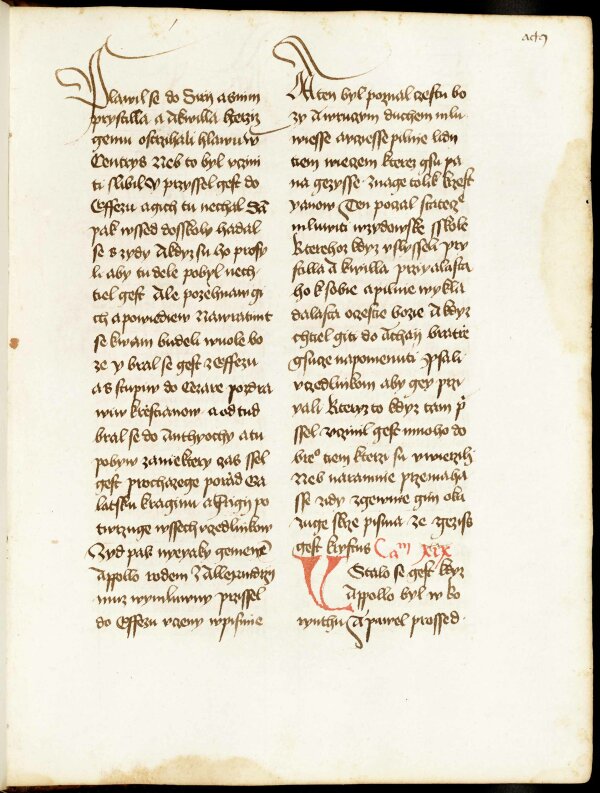 Plawil se do Siri a s nim
pryscilla a Akwilla kterziz
gemu ostrzihali hlawu w
Centrys Neb to byl vczini
ti slibil y przyssel gest do
Effezu a gich tu nechal Sa
pak wssed do sskoly hadal
se s zydy A kdyz su ho prosy
li aby tu dele pobyl nech
tiel gest Ale pozehnaw gi
ch a powiediew Nawratimt
se k wam budeli wuole bo
ze y bral se gest z Effezu
a sstupiw do Cezare pozdra
wiw krestianow a od tud
bral se do Anthyochy a tu
pobyw za niektery czas ssel
gest prochazege porad Ga
latsku kraginu a Frigij po
twrzuge wssech vczedlnikow
Zyd pak nyeyaky gmenem
Appollo rodem z Allexandrzi
muz wymluwny przyssel
do Effezu vczeny w pismie
A ten byl poznal czestu bo
zy A wrucym duchem mlu
wiesse a vcziesse pilnie lidu
tiem wieczem kterez gsu pa
na gezysse znage tolik krzest
yanow Ten poczal statecze
mluwiti w zydowske sskole
Kterehoz kdyz vslysseli pry
scilla A kwilla przyialasta
ho k sobie a pilnie wykla
dalasta o czestie bozie A kdyz
chtiel giti do Achaij bratrie
gsucze napomenuti psali
vczedlnikom aby gey przi
yali Kteryzto kdyz tam pri
ssel vczinil gest mnoho do
breho tiem kterzi su vwierzili
Neb naramnie przemaha
sse zidy zgewnie gim oka
zuge skrze pisma ze gezis
gest krystus Cam XIX
Stalo se gest kdyz
Appollo byl w ko
rynthu A pawel prossed